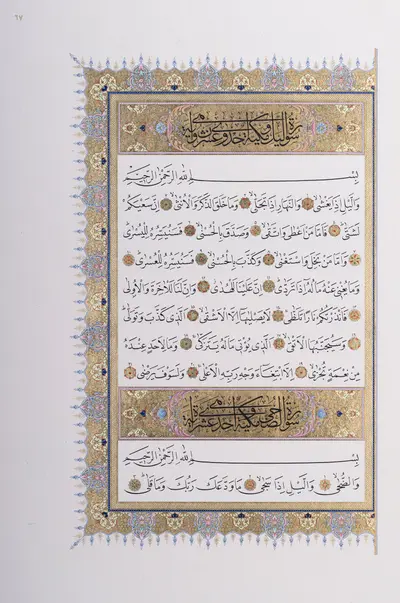 ٦٧
سُورَةُ الَّيْلِ مَكِّيَّةٌ وَهِيَ اِحْدٰى وَعِشْرُونَ اٰيَةً
بِسْمِ اللّٰهِ الرَّحْمٰنِ الرَّحِيمِ
وَالَّيْلِ اِذَا يَغْشٰى وَالنَّهَارِ اِذَا تَجَلّٰى وَمَا خَلَقَ الذَّكَرَ وَالْاُنْثٰى اِنَّ سَعْيَكُمْ
لَشَتّٰى فَاَمَّا مَنْ اَعْطٰى وَاتَّقٰى وَصَدَّقَ بِالْحُسْنٰى فَسَنُيَسِّرُهُ لِلْيُسْرٰى
وَاَمَّا مَنْ بَخِلَ وَاسْتَغْنٰى وَكَذَّبَ بِالْحُسْنٰى فَسَنُيَسِّرُهُ لِلْعُسْرٰى
وَمَا يُغْنِي عَنْهُ مَالُهُ اِذَا تَرَدّٰى اِنَّ عَلَيْنَا لَلْهُدٰى وَاِنَّ لَنَا لَلْاٰخِرَةَ وَالْاُولٰى
فَاَنْذَرْتُكُمْ نَارًا تَلَظّٰى لَا يَصْلٰيهَا اِلَّا الْاَشْقٰى اَلَّذِي كَذَّبَ وَتَوَلّٰى
وَسَيُجَنَّبُهَا الْاَتْقٰى اَلَّذِي يُؤْتِي مَالَهُ يَتَزَكّٰى وَمَا لِاَحَدٍ عِنْدَهُ
مِنْ نِعْمَةٍ تُجْزٰى اِلَّا ابْتِغَاءَ وَجْهِ رَبِّهِ الْاَعْلٰى وَلَسَوْفَ يَرْضٰى
سُورَةُ الضُّحٰى مَكِّيَّةٌ وَهِيَ اِحْدٰى عَشْرَةَ اٰيَةً
بِسْمِ اللّٰهِ الرَّحْمٰنِ الرَّحِيمِ
وَالضُّحٰى وَالَّيْلِ اِذَا سَجٰى مَا وَدَّعَكَ رَبُّكَ وَمَا قَلٰى